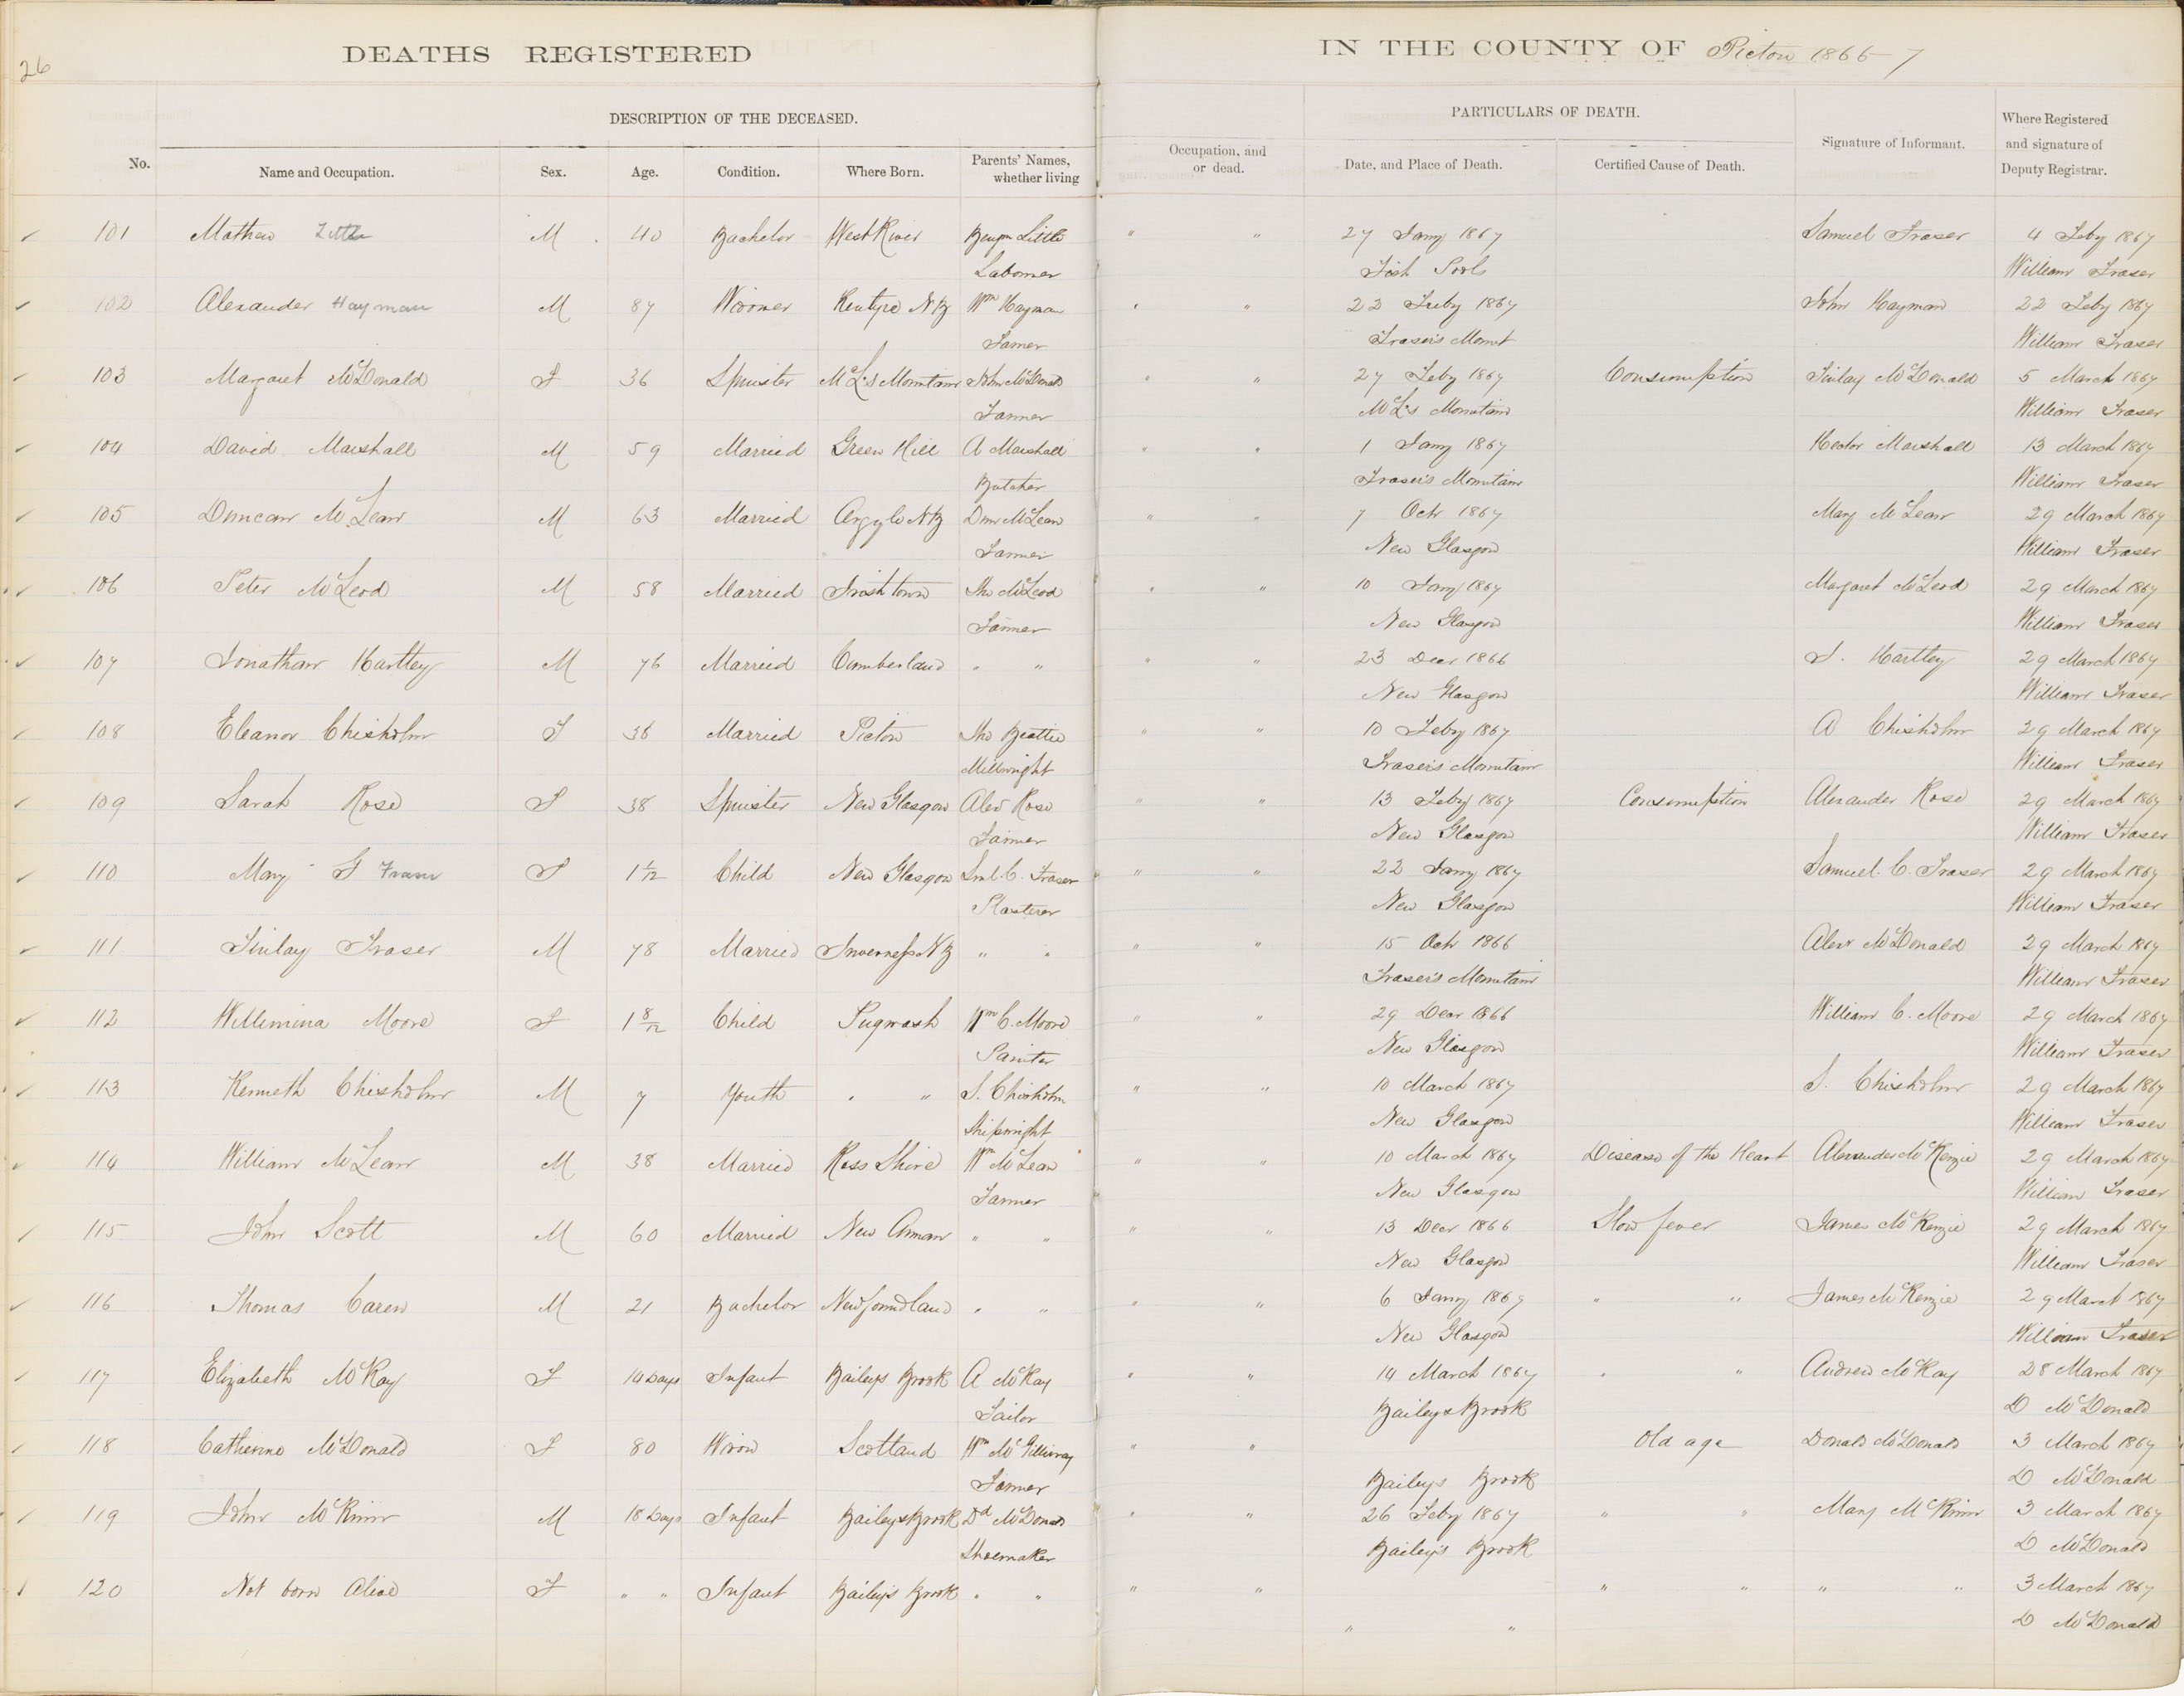 26
DEATHS REGISTERED IN THE COUNTY OF Pictou 1866-7
DESCRIPTION OF THE DECEASED. PARTICULARS OF DEATH.
No. Name and Occupation. Sex. Age. Condition. Where Born. Parents' Names, whether living Occupation, and or dead. Date, and Place of Death. Certified Cause of Death. Signature of Informant. Where Registered and signature of Deputy Registrar.
101 Mathew Little M 40 Bachelor West River Benjm Little " " 27 Jany 1867 Samuel Fraser 4 Feby 1867
Labourer Fish Pools William Fraser
102 Alexander Hayman M 87 Widower Kentyre NB Wm Hayman " " 22 Feby 1867 John Hayman 22 Feby 1867
Farmer Fraser's Mount William Fraser
103 Margaret McDonald F 36 Spinster McL's Mountain John McDonald " " 27 Feby 1867 Consumption Finlay McDonald 5 March 1867
Farmer McL's Mountain William Fraser
104 David Marshall M 59 Married Green Hill A Marshall " " 1 Jany 1867 Hector Marshall 13 March 1867
Butcher Fraser's Mountain William Fraser
105 Duncan McLean M 63 Married Argyle NB Dun McLean " " 7 Octr 1867 Mary McLean 29 March 1867
Farmer New Glasgow William Fraser
106 Peter McLeod M 58 Married Irishtown Jno McLeod " " 10 Jany 1867 Margaret McLeod 29 March 1867
Farmer New Glasgow William Fraser
107 Jonathan Hartley M 76 Married Cumberland " " " " 23 Decr 1866 J. Hartley 29 March 1867
New Glasgow William Fraser
108 Eleanor Chisholm F 36 Married Pictou Jno Beattie " " 10 Feby 1867 A Chisholm 29 March 1867
Millwright Fraser's Mountain William Fraser
109 Sarah Rose F 38 Spinster New Glasgow Alex Rose " " 13 Feby 1867 Consumption Alexander Rose 29 March 1867
Farmer New Glasgow William Fraser
110 Mary G Fraser F 1 1/12 Child New Glasgow Saml C. Fraser " " 22 Jany 1867 Samuel C. Fraser 29 March 1867
Plasterer New Glasgow William Fraser
111 Finlay Fraser M 78 Married Inverness NB " " " " 15 Octr 1866 Alexr McDonald 29 March 1867
Fraser's Mountain William Fraser
112 Willimina Moore F 1 8/12 Child Pugwash Wm C. Moore " " 29 Decr 1866 William C. Moore 29 March 1867
Painter New Glasgow William Fraser
113 Kenneth Chisholm M 7 Youth " " S. Chisholm " " 10 March 1867 S. Chisholm 29 March 1867
Shipwright New Glasgow William Fraser
114 William McLean M 38 Married Ross Shire Wm McLean " " 10 March 1867 Disease of the Heart Alexander McKenzie 29 March 1867
Farmer New Glasgow William Fraser
115 John Scott M 60 Married New Annan " " " " 13 Decr 1866 Slow fever James McKenzie 29 March 1867
New Glasgow William Fraser
116 Thomas Caren M 21 Bachelor Newfoundland " " " " 6 Jany 1867 " " James McKenzie 29 March 1867
New Glasgow William Fraser
117 Elizabeth McKay F 14 Days Infant Baileys Brook A McKay " " 14 March 1867 " " Andrew McKay 28 March 1867
Tailor Baileys Brook D McDonald
118 Catherine McDonald F 80 Widow Scotland Wm McGillivray " " Old age Donald McDonald 3 March 1867
Farmer Baileys Brook D McDonald
119 John McKinn M 18 Days Infant Baileys Brook Dd McDonald " " 26 Feby 1867 " " Mary McKinn 3 March 1867
Shoemaker Bailey's Brook D McDonald
120 Not born Alive F " " Infant Bailey's Brook " " " " " " " " 3 March 1867
" " D McDonald